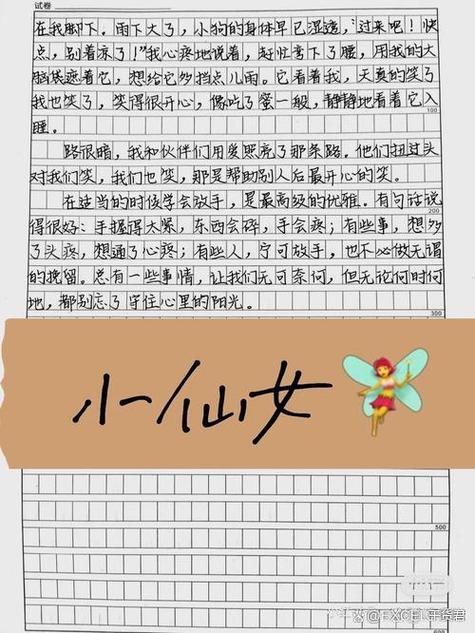 试卷
在我脚下。雨下大了，小狗的身体早已湿透，“过来吧！快
点，别着凉了！”我心疼地说着，赶忙弯下了腰，用我的大
脑袋遮着它，想给它多挡点儿雨。它看着我，天真的笑了
我也笑了，笑得很开心，像吃了蜜一般，静静地看着它入
睡。
100
路很暗，我和伙伴们用爱照亮了那条路。他们扭过头
对我们笑，我们也笑，那是帮助别人后最开心的笑。
在适当的时候学会放手，是最高级的优雅。有句话说
200
得很好：手握得太紧，东西会碎，手会疼；有些事，想多
了头疼，想通了心疼；有些人，宁可放手，也不必做无谓
的挽留。总有一些事情，让我们无可奈何，但无论何时何
地，都别忘了守住心里的阳光。
300
小仙女
500
@EXCEL干货君
600